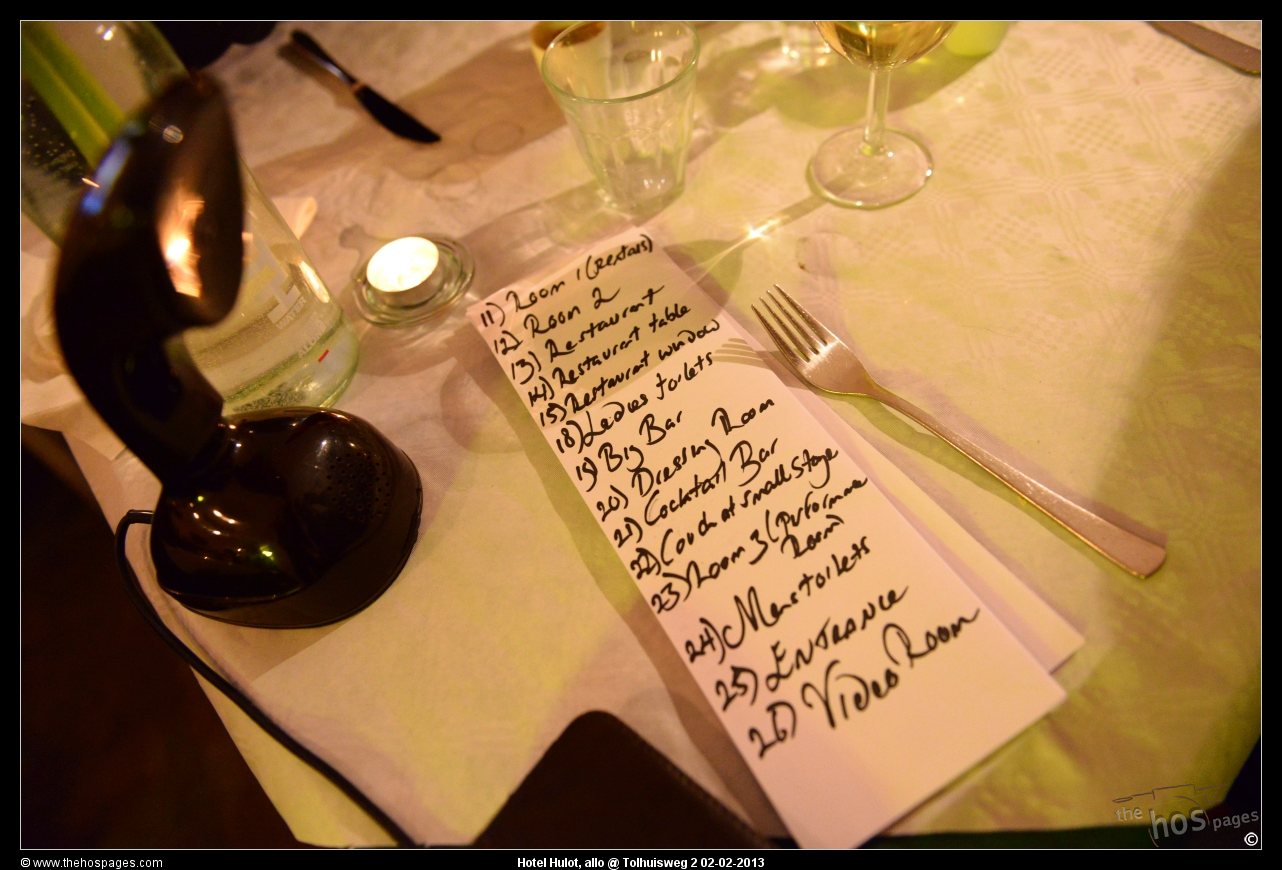 11) Room 1 (Rentals)
12) Room 2
13) Restaurant
14) Restaurant table
15) Restaurant window
18) Ladies toilets
19) Big Bar
20) Dressing Room
21) Cocktail Bar
22) Couch at small stage
23) Room 3 (performance
Room)
24) Mens toilets
25) ENTRANCE
26) Video Room
the hos pages
©
© www.thehospages.com
Hotel Hulot, allo @ Tolhuisweg 2 02-02-2013